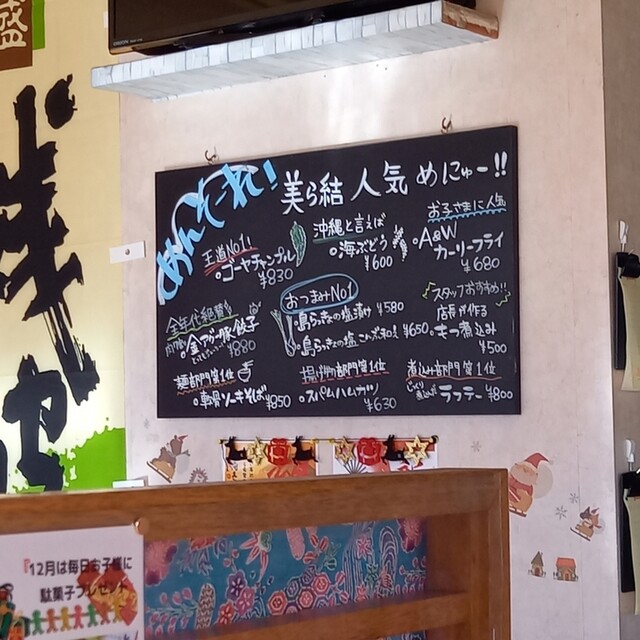 盛
めんそーれ!
美ら結 人気 めにゅー!!
王道No1!
・ゴーヤチャンプル
¥830
沖縄と言えば
・海ぶどう
¥600
お子さまに人気
・A&W
カーリーフライ
¥680
全年代絶賛!
・金アグー豚餃子
¥880
おつまみNo1
・島らっきょの塩漬け ¥580
・島らっきょの塩こんぶ和え ¥650
スタッフおすすめ!!
店長が作る
・もつ煮込み
¥500
麺部門第1位
・軟骨ソーキそば ¥850
揚げ物部門第1位
・スパムハムカツ
¥630
煮込み部門第1位
ラフテー ¥800
『12月は毎日お子様に
駄菓子プレゼント